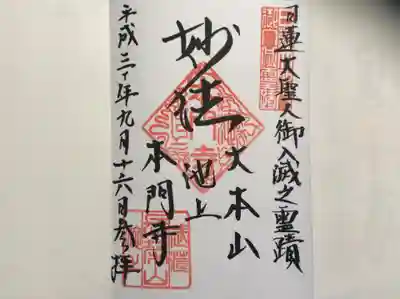 日蓮大聖人御入滅之霊蹟
大本山
池上
本門寺
妙法
平成三十年九月十六日参拝